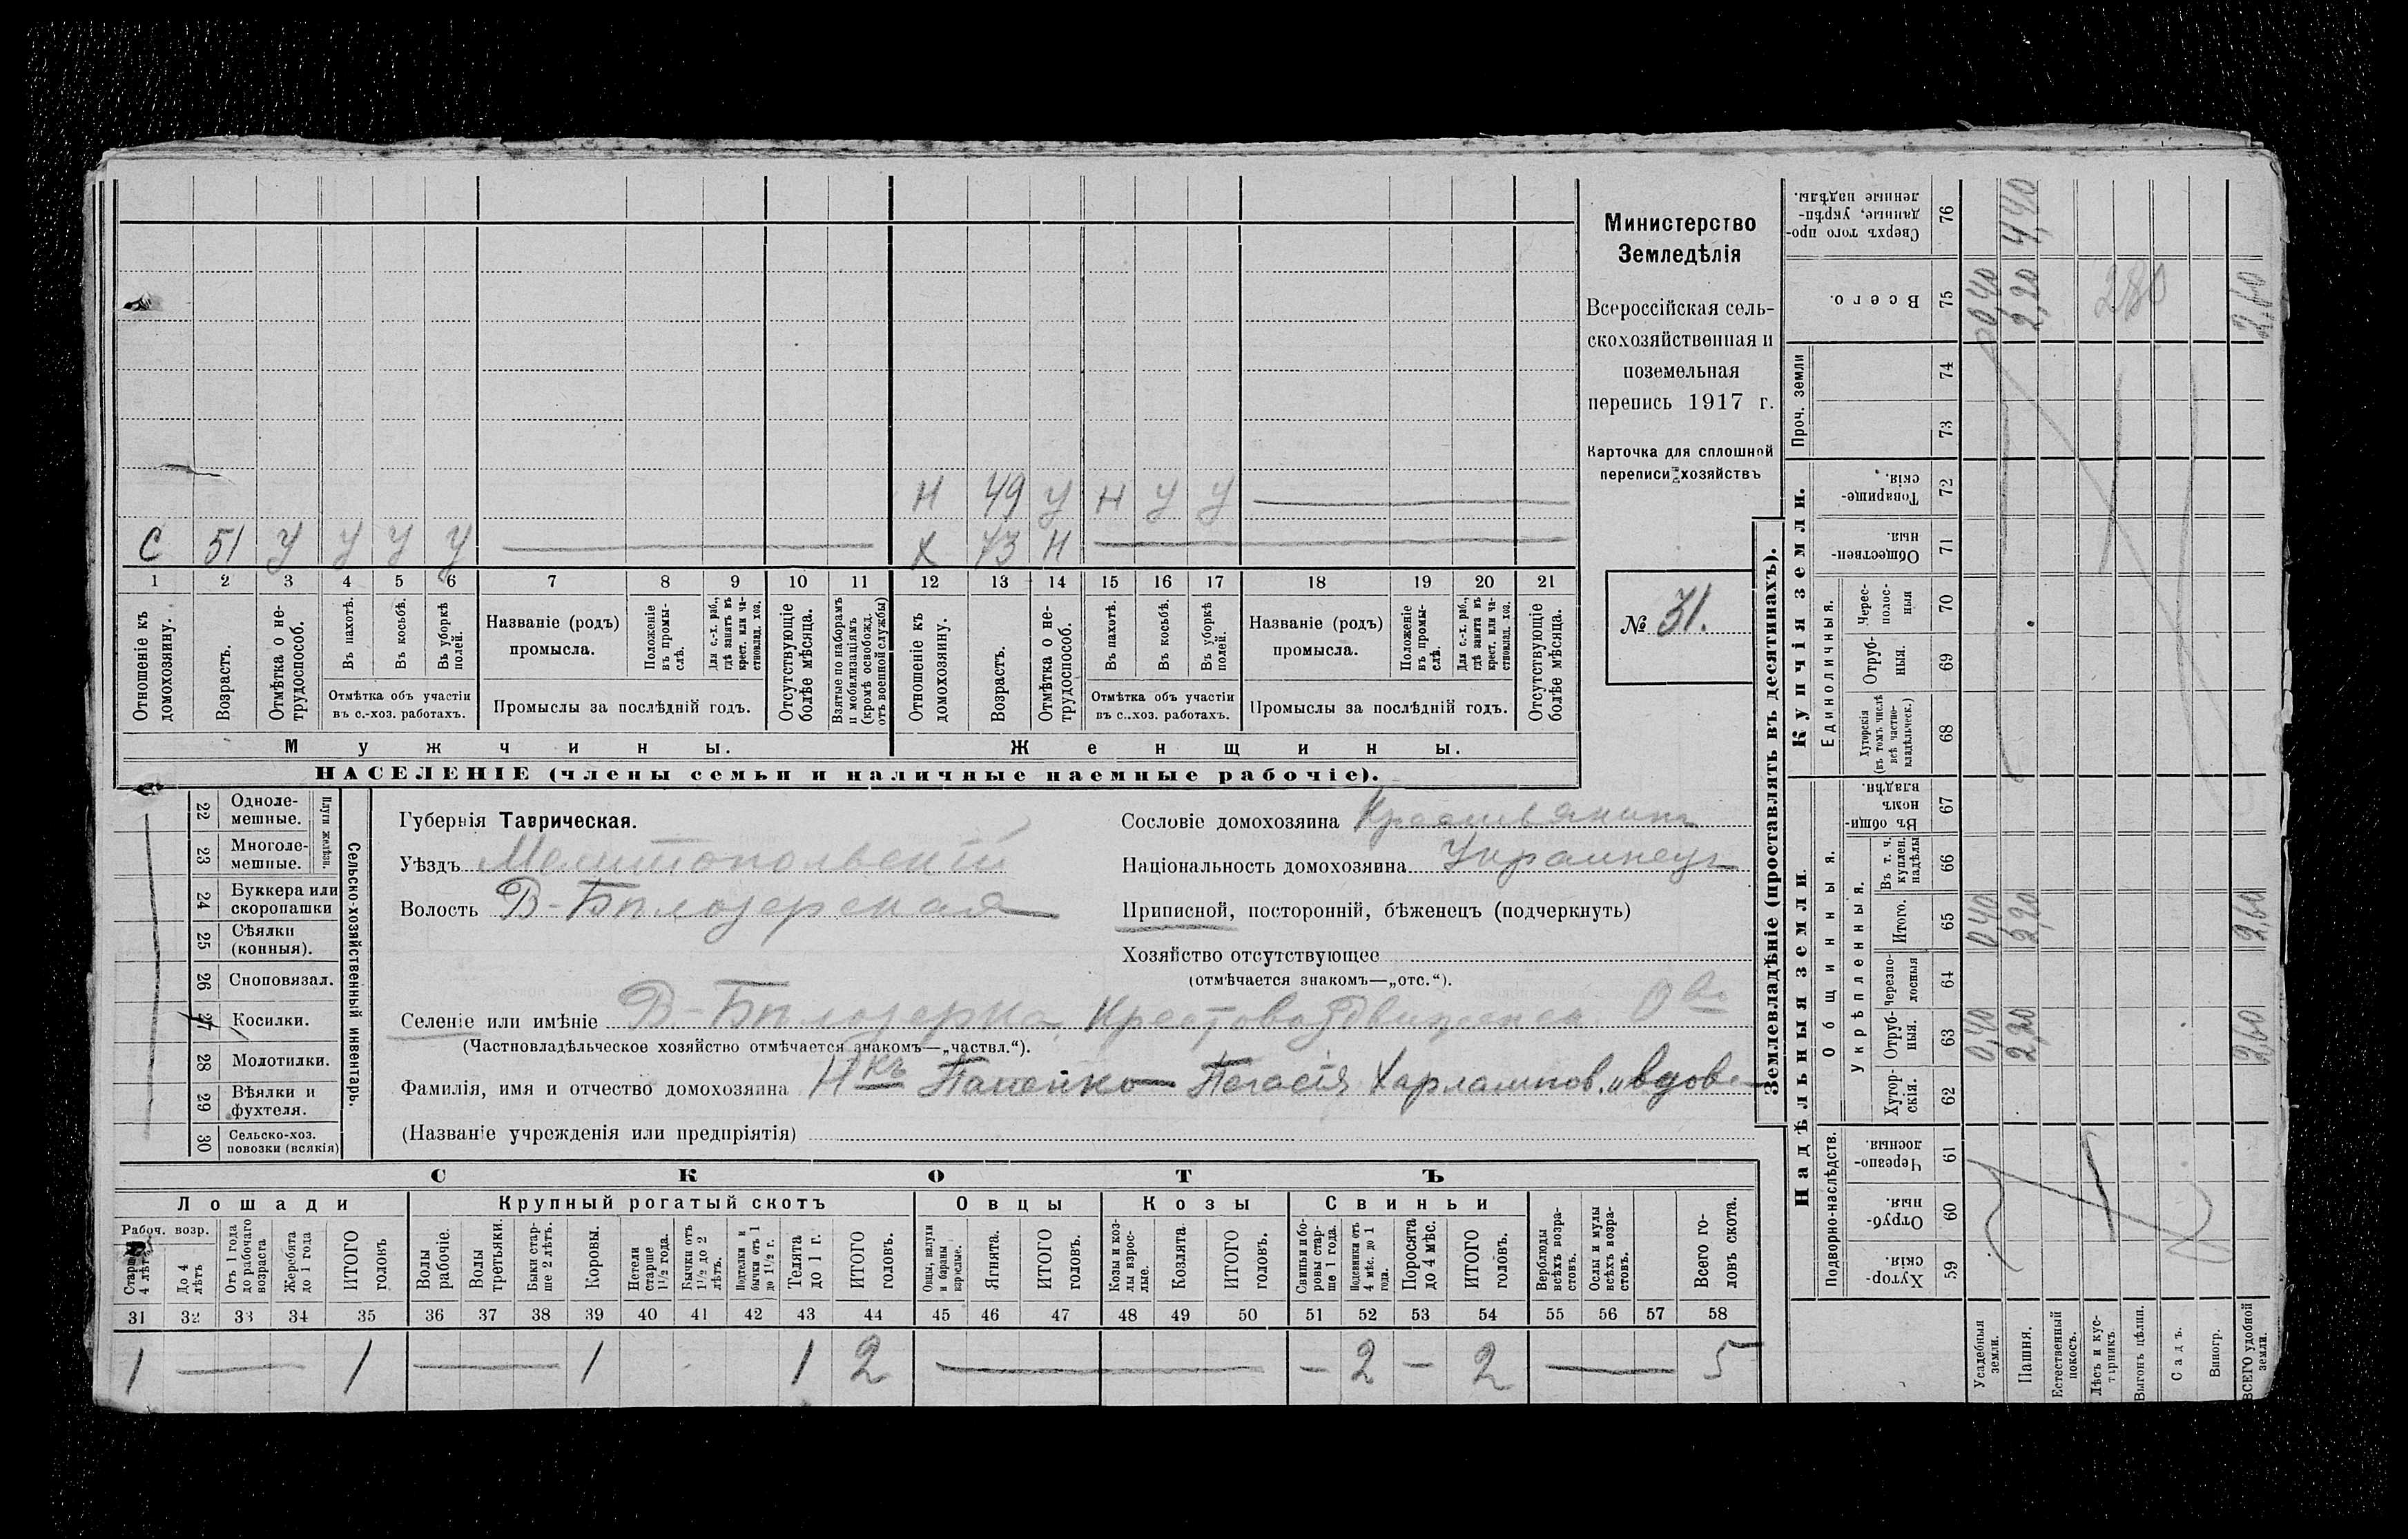 С 51 У У У У
Н 49 У Н У У
Х 73 Н
1 2 3 4 5 6 7 8 9 10 11 12 13 14 15 16 17 18 19 20 21
Отношеніе къ домохозяину.
Возрастъ.
Отмѣтка о не-трудоспособ.
Въ пахотѣ.
Въ косьбѣ.
Въ уборкѣ полей.
Отмѣтка объ участіи
въ с.-хоз. работахъ.
Названіе (родъ)
промысла.
Положеніе въ промы-слѣ.
Для с.-х. раб., гдѣ занятъ въ крест. или ча-стновлад. хоз.
Промыслы за послѣдній годъ.
Отсутствующіе болѣе мѣсяца.
Взятые по наборамъ и мобилизаціямъ (кромѣ освобожд. отъ военной службы)
Отношеніе къ домохозяину.
Возрастъ.
Отмѣтка о не-трудоспособ.
Въ пахотѣ.
Въ косьбѣ.
Въ уборкѣ полей.
Отмѣтка объ участіи
въ с..хоз. работахъ.
Названіе (родъ)
промысла.
Положеніе въ промы-слѣ.
Для с.-х. раб., гдѣ занята въ крест. или ча-стновлад. хоз.
Промыслы за послѣдній годъ.
Отсутствующіе болѣе мѣсяца.
Мужчины.
Женщины.
НАСЕЛЕНІЕ (члены семьи и наличные наемные рабочіе).
Министерство
Земледѣлія
Всероссійская сель-
скохозяйственная и
поземельная
перепись 1917 г.
Карточка для сплошной
переписи хозяйствъ
№ 31.
22 Одноле-
мешные.
23 Многоле-
мешные.
Плуги желѣзн.
24 Буккера или
скоропашки
25 Сѣялки
(конныя).
26 Сноповязал.
27 Косилки.
28 Молотилки.
29 Вѣялки и
фухтеля.
30 Сельско-хоз.
повозки (всякія)
Сельско-хозяйственный инвентарь.
Губернія Таврическая.
Уѣздъ Мелитопольскій
Волость В-Бѣлозерская
Сословіе домохозяина Крестьянинъ
Національность домохозяина Украинецъ
Приписной, посторонній, бѣженецъ (подчеркнуть)
Хозяйство отсутствующее
(отмѣчается знакомъ—„отс.“).
Селеніе или имѣніе В.-Бѣлозерка Крестовоздвиженск. О во
(Частновладѣльческое хозяйство отмѣчается знакомъ—„частвл.“).
Фамилія, имя и отчество домохозяина Н къ Папейко Пегасія Харлампов. вдов
(Названіе учрежденія или предпріятія)
СКОТЪ
Лошади
Крупный рогатый скотъ
Овцы
Козы
Свиньи
Рабоч. возр.
Старше 4 лѣтъ
До 4 лѣтъ
Отъ 1 года до рабочаго возраста
Жеребята до 1 года
ИТОГО головъ
Волы рабочіе.
Волы третьяки.
Быки стар-ше 2 лѣтъ.
Коровы.
Нетели старше 1½ года.
Бычки отъ 1½ до 2 лѣтъ.
Подтелки и бычки отъ 1 до 1½ г.
Телята до 1 г.
ИТОГО головъ.
Овцы, валухи и бараны взрослые.
Ягнята.
ИТОГО головъ.
Козы и коз-лы взрос-лые.
Козлята
ИТОГО головъ.
Свиньи и бо-ровы стар-ше 1 года.
Подсвинки отъ 4 мѣс. до 1 года.
Поросята до 4 мѣс.
ИТОГО головъ.
Верблюды всѣхъ возра-стовъ.
Ослы и мулы всѣхъ возра-стовъ.
Всего го-ловъ скота.
31 32 33 34 35 36 37 38 39 40 41 42 43 44 45 46 47 48 49 50 51 52 53 54 55 56 57 58
1 — 1 — 1 1 2 — – 2 – 2 — 5
Землевладѣніе (проставлять въ десятинахъ).
Надѣльныя земли.
Купчія земли.
Подворно-наслѣдств.
Общинныя.
Укрѣпленныя.
Единоличныя.
Проч. земли
Хутор-скія. 59
Отруб-ныя. 60
Черезпо-лосныя. 61
Хутор-скія. 62
Отруб-ныя. 63
Черезпо-лосныя 64
Итого. 65
Въ т. ч. куплен. надѣлы 66
Въ общи-номъ владѣн. 67
Хуторскія (въ томъ числѣ всѣ частно-владѣльческ.) 68
Отруб-ныя. 69
Черес-полос-ныя 70
Обществен-ныя. 71
Товарище-скія. 72
73
74
Всего. 75
Сверхъ того про-данные, укрѣп-ленные надѣлы. 76
Усадебныя земли. 0,40 0,40 0,40
Пашня. 2,20 2,20 2,20 4,40
Естественный покосъ.
Лѣсъ и кус-тарникъ
Выгонъ цѣлин.
Садъ.
Виногр.
ВСЕГО удобной земли. 2,60 2,60 2,60